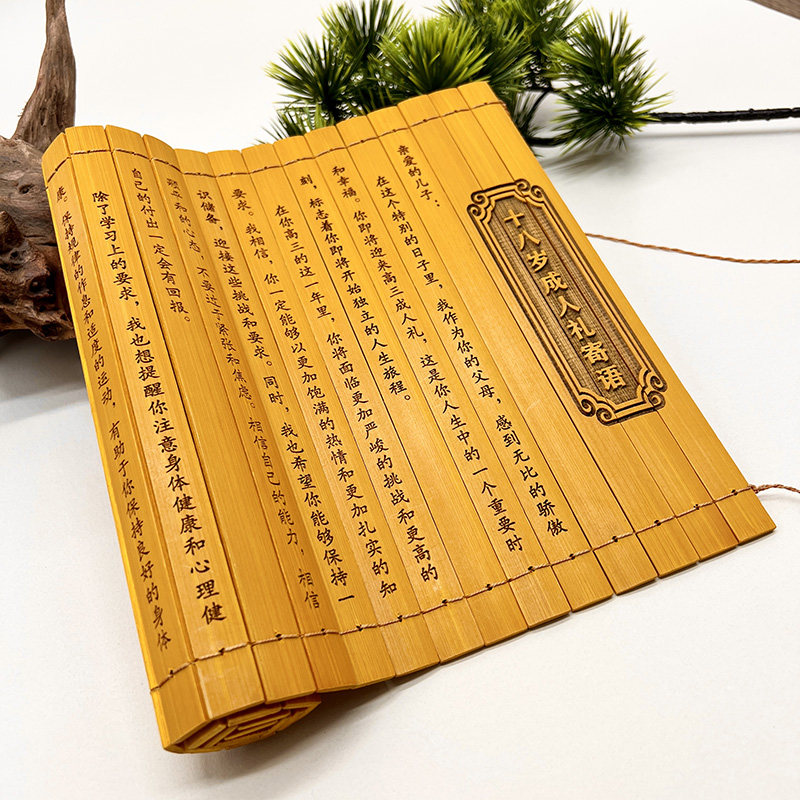 十八岁成人礼寄语
亲爱的儿子：
在这个特别的日子里，我作为你的父母，感到无比的骄傲
和幸福。你即将迎来高三成人礼，这是你人生中的一个重要时
刻，标志着你即将开始独立的人生旅程。
在你高三的这一年里，你将面临更加严峻的挑战和更高的
要求。我相信，你一定能够以更加饱满的热情和更加扎实的知
识储备，迎接这些挑战和要求。同时，我也希望你能够保持一
的心态，不要过于紧张和焦虑。相信自己的能力，相信
自己的付出一定会有回报。
除了学习上的要求，我也想提醒你注意身体健康和心理健
康。保持规律的作息和适度的运动，有助于你保持良好的身体